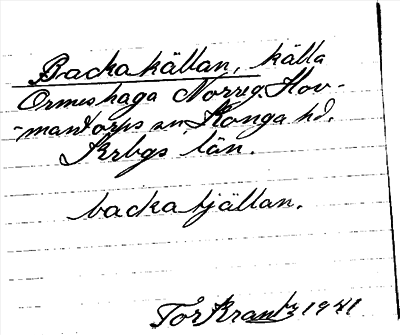 Backakällan, källa
Ormeshaga Norreg. Hov-
-mantorps sn, Konga hd.
Krbgs län.
backatjällan.
Tor Krantz 1941